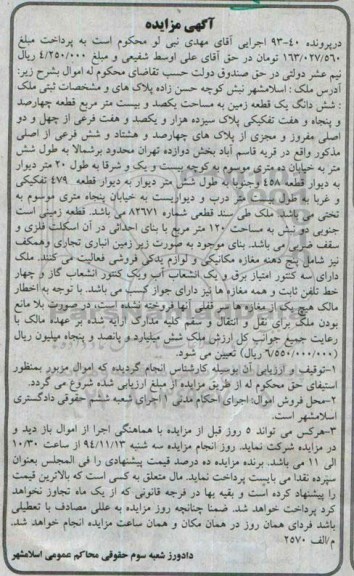 آگهی مزایده
درپرونده ۴۰-۹۳ اجرایی آقای مهدی نبی لو محکوم است به پرداخت مبلغ
۱۶۳/۰۲۷/۵۶۰ تومان در حق آقای علی اوسط شفیعی و مبلغ ۴/۲۵۰/۰۰۰ ریال
نیم عشر دولتی در حق صندوق دولت حسب تقاضای محکوم له اموال بشرح زیر:
آدرس ملک : اسلامشهر نبش کوچه حسن زاده پلاک های و مشخصات ثبتی ملک
: شش دانگ یک قطعه زمین به مساحت یکصد و بیست متر مربع قطعه چهارصد
و پنجاه و هفت تفکیکی پلاک سیزده هزار و یکصد و هفت فرعی از چهل و دو
اصلی مفروز و مجزی از پلاک های چهارصد و هشتاد و شش فرعی از اصلی
مذکور واقع در قریه قاسم آباد بخش دوازده تهران محدود برشمالا به طول شش
متر به خیابان ده متری موسوم به کوچه بیست و یک و شرقا به طول ۲۰ متر دیوار
به دیوار قطعه ۴۵۸ وجنوبا به طول شش متر دیوار به دیوار قطعه ۴۷۹ تفکیکی
و غربا به طول ۲۰ متر درب و دیواریست به خیابان پنجاه متری موسوم به
تختی می باشد. ملک طی سند قطعی شماره ۸۲۶۷۱ می باشد. قطعه زمینی است
جنوبی دو نبش به مساحت ۱۲۰ متر مربع با بنای احداثی در آن اسکلت فلزی و
سقف ضربی می باشد. بنای موجود به صورت زیر زمین انباری تجاری وهمکف
نیز شامل پنج دهنه مغازه مکانیکی و لوازم یدکی فروشی فعالیت می کنند. ملک
دارای سه کنتور امتیاز برق و یک انشعاب آب ویک کنتور انشعاب گاز و چهار
خط تلفن ثابت و همه مغازه ها نیز دارای جواز کسب می باشد. با توجه به اظهار
مالک هیچ یک از مغازه ها سر قفلی آنها فروخته نشده است، در صورت بلا مانع
بودن ملک برای نقل و انتقال و سقم کلیه مدارک ارایه شده بر عهده مالک با
رعایت جمیع جوانب کل ارزش ملک شش میلیارد و پانصد و پنجاه میلیون ریال
(۶/۵۵۰/۰۰۰/۰۰۰ ریال) تعیین می شود.
۱-توقیف و ارزیابی آن بوسیله کارشناس انجام گردیده که اموال مزبور بمنظور
استیفای حق محکوم له از طریق مزایده از مبلغ ارزیابی شده شروع می گردد.
۲-محل فروش اموال: اجرای احکام مدنی ۱ اجرای شعبه ششم حقوقی دادگستری
اسلامشهر است.
۳-هرکس می تواند ۵ روز قبل از مزایده با هماهنگی اجرا از اموال باز دید و
در مزایده شرکت نماید. روز انجام مزایده سه شنبه ۹۴/۱۱/۱۳ از ساعت ۱۰/۳۰
الی ۱۱ می باشد. برنده مزایده ده درصد قیمت پیشنهادی را فی المجلس بعنوان
سپرده نقدا می بایست پرداخت نماید. مال متعلق به کسی است که بالاترین قیمت
را پیشنهاد کرده است و بقیه بها در فرجه قانونی که از یک ماه تجاوز نخواهد
کرد پرداخت خواهد شد. ضمنا چنانچه روز مزایده به عللی مصادف با تعطیلی
باشد فردای همان روز در همان مکان و همان ساعت مزایده انجام خواهد شد.
م/الف ۲۵۷۰
دادورز شعبه سوم حقوقی محاکم عمومی اسلامشهر